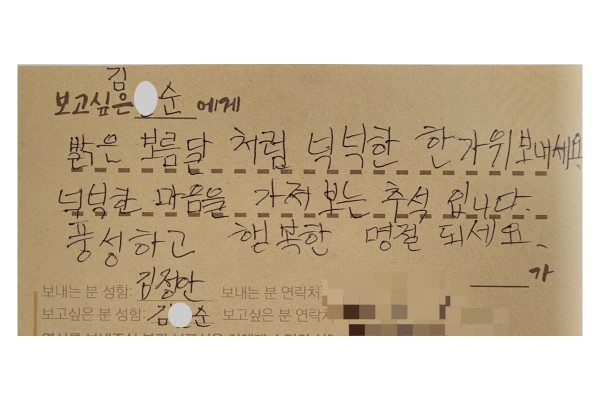 보고싶은 김 순 에게
밝은 보름달 처럼 넉넉한 한가위보내세요
넉넉한 마음을 가져 보는 추석 입니다.
풍성하고 행복한 명절 되세요.
가
보내는 분 성함: 김정안 보내는 분 연락처
보고싶은 분 성함: 김 순 보고싶은 분 연락처